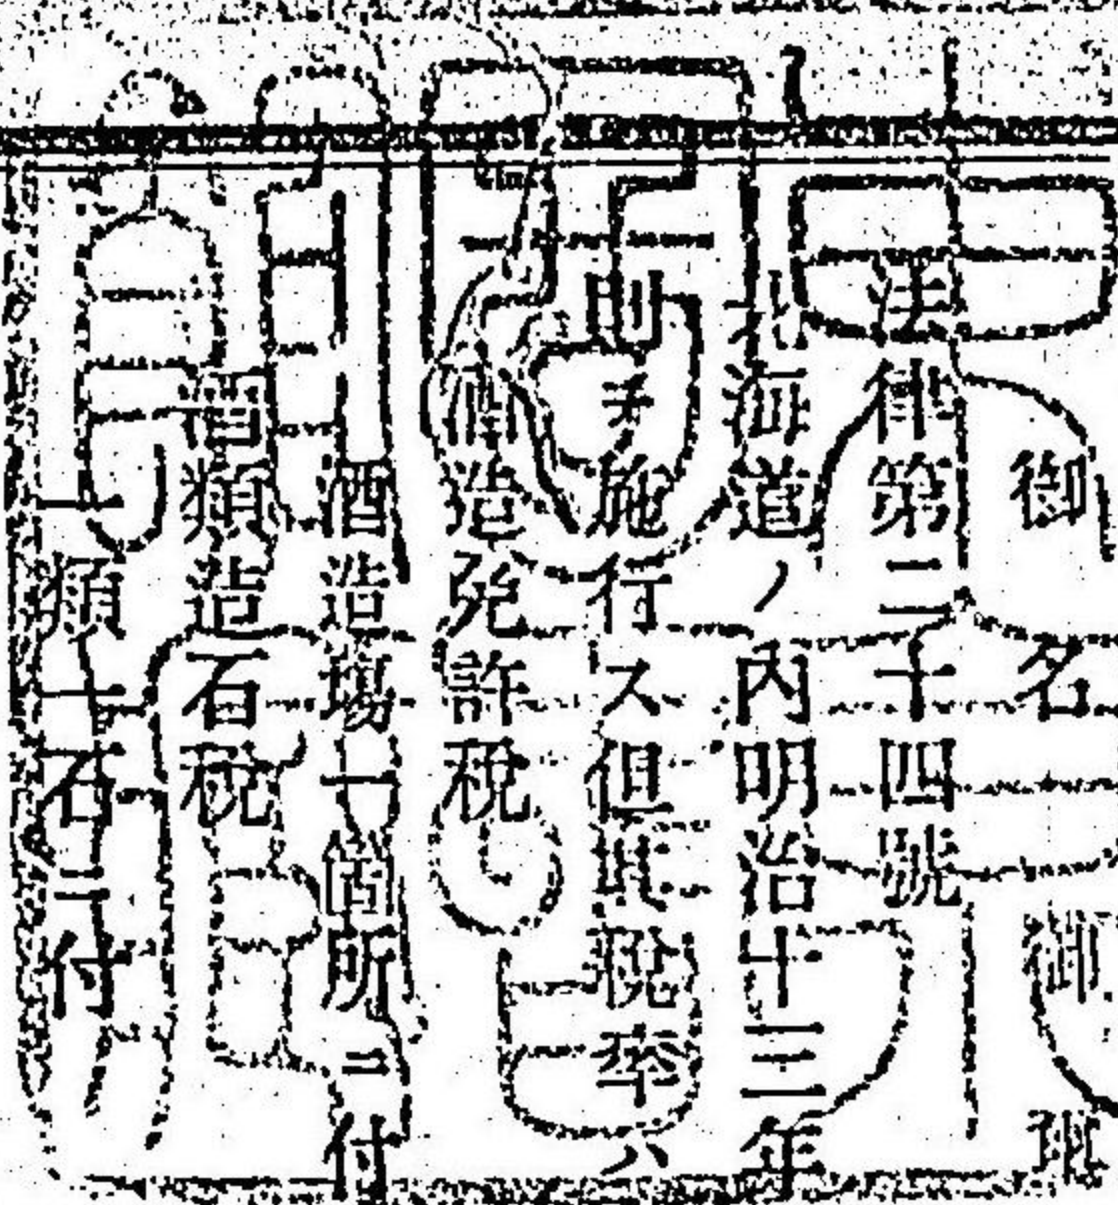 御名御璽
法律第二十四號
北海道ノ內明治十三年
則ヲ施行ス但其稅率ハ
酒造免許稅
酒造場一箇所ニ付
酒類造石稅
一類一石ニ付